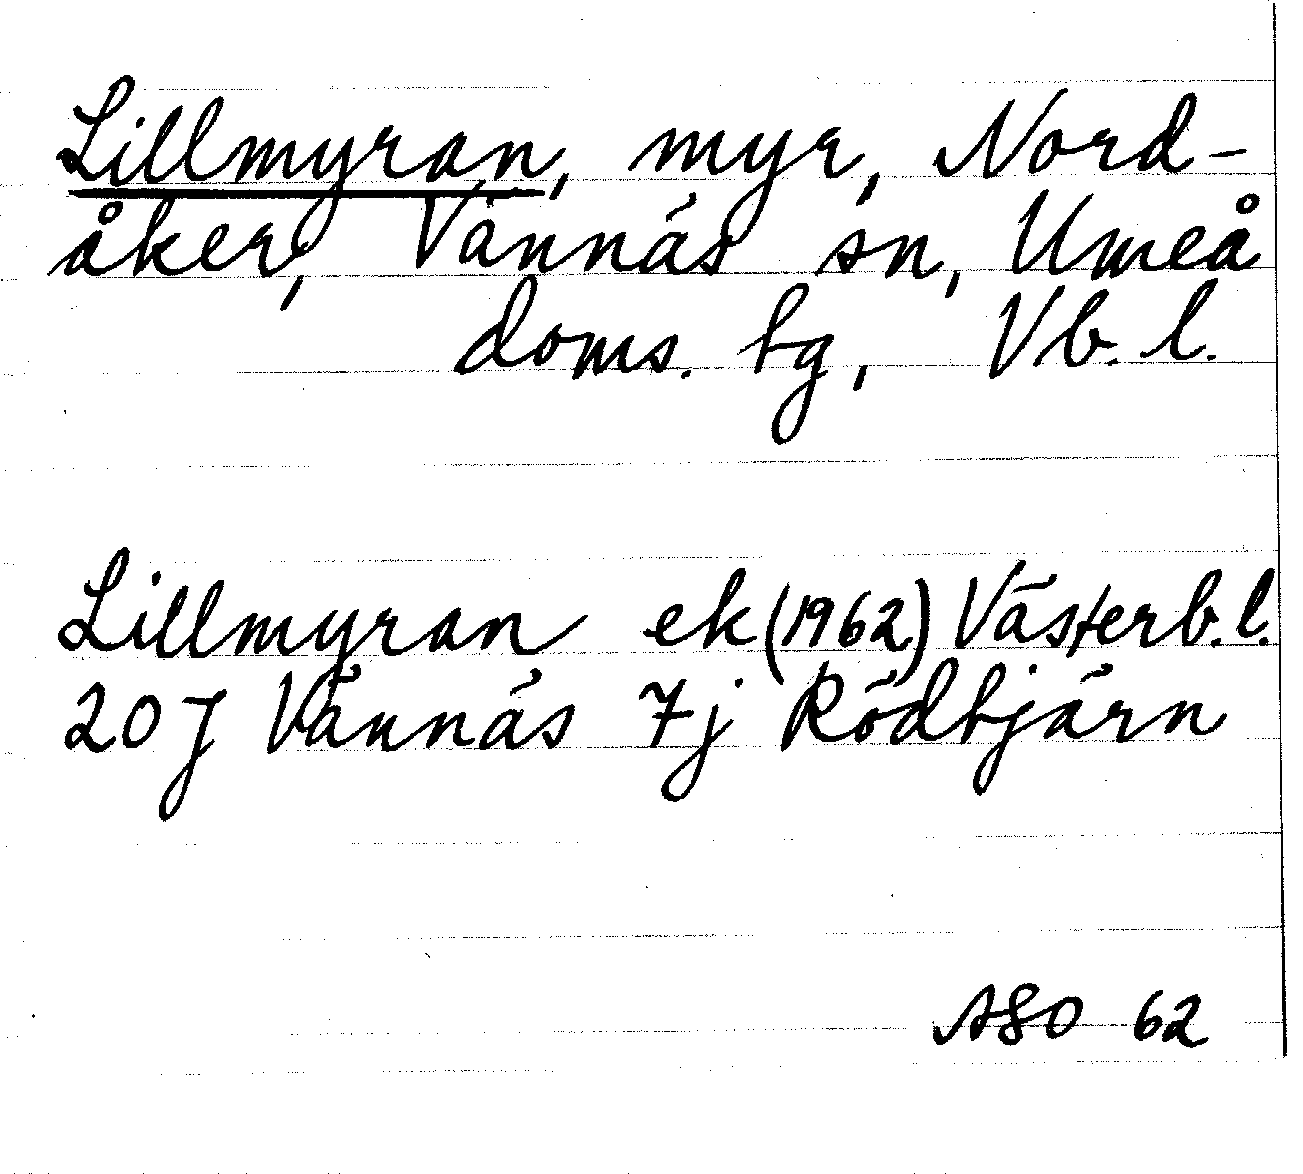 Lillmyran, myr, Nord-
åker, Vännäs sn, Umeå
doms. hg, Vb. l.
Lillmyran ek (1962) Västerb. l.
20 J Vännäs 7j Rödbjörn
ASO 62